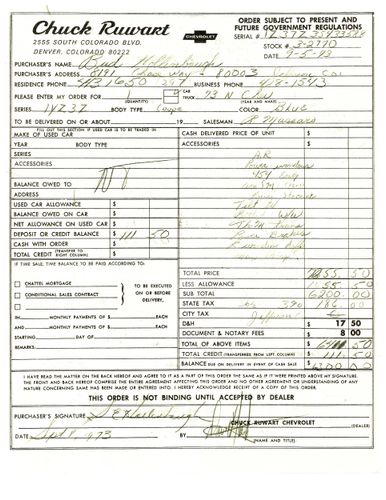 Chuck Ruwart
CHEVROLET
2555 SOUTH COLORADO BLVD.
DENVER, COLORADO
ORDER SUBJECT TO PRESENT AND
FUTURE GOVERNMENT REGULATIONS
SERIAL #
STOCK # 3-2770
DATE 9-5-73
PURCHASER'S NAME Bud
PURCHASER'S ADDRESS 8191 Way 80003
RESIDENCE PHONE BUSINESS PHONE
PLEASE ENTER MY ORDER FOR (QUANTITY) CAR TRUCK 73 N Chev (YEAR AND MAKE)
SERIES 1YZ37 BODY TYPE Coupe COLOR Blue
TO BE DELIVERED ON OR ABOUT 19 SALESMAN R Massaro
FILL OUT THIS SECTION IF USED CAR IS TO BE TRADED IN
MAKE OF USED CAR
YEAR BODY TYPE
SERIES
ACCESSORIES
BALANCE OWED TO
ADDRESS
USED CAR ALLOWANCE $
BALANCE OWED ON CAR $
NET ALLOWANCE ON USED CAR $
DEPOSIT OR CREDIT BALANCE $ 111 50
CASH WITH ORDER $
TOTAL CREDIT (TRANSFER TO RIGHT COLUMN) $
IF TIME SALE, TIME BALANCE TO BE PAID ACCORDING TO:
CHATTEL MORTGAGE
CONDITIONAL SALES CONTRACT
TO BE EXECUTED
ON OR BEFORE
DELIVERY.
IN MONTHLY PAYMENTS OF $ EACH
AND MONTHLY PAYMENTS OF $ EACH
STARTING DAY OF
REMARKS
CASH DELIVERED PRICE OF UNIT $
ACCESSORIES
Power windows
454
Tilt
TOTAL PRICE
LESS ALLOWANCE
SUB TOTAL 6200.00
STATE TAX 186 00
CITY TAX
D&H 17 50
DOCUMENT & NOTARY FEES 8 00
TOTAL OF ABOVE ITEMS
TOTAL CREDIT (TRANSFERRED FROM LEFT COLUMN) $ 111.50
BALANCE DUE ON DELIVERY IN EVENT OF CASH SALE $
I HAVE READ THE MATTER ON THE BACK HEREOF AND AGREE TO IT AS A PART OF THIS ORDER THE SAME AS IF IT WERE PRINTED ABOVE MY SIGNATURE.
THE FRONT AND BACK HEREOF COMPRISE THE ENTIRE AGREEMENT AFFECTING THIS ORDER AND NO OTHER AGREEMENT OR UNDERSTANDING OF ANY
NATURE CONCERNING SAME HAS BEEN MADE OR ENTERED INTO. I HEREBY ACKNOWLEDGE RECEIPT OF A COPY OF THIS ORDER.
THIS ORDER IS NOT BINDING UNTIL ACCEPTED BY DEALER
PURCHASER'S SIGNATURE
CHUCK RUWART CHEVROLET (DEALER)
DATE Sept 8, 1973 BY (NAME AND TITLE)